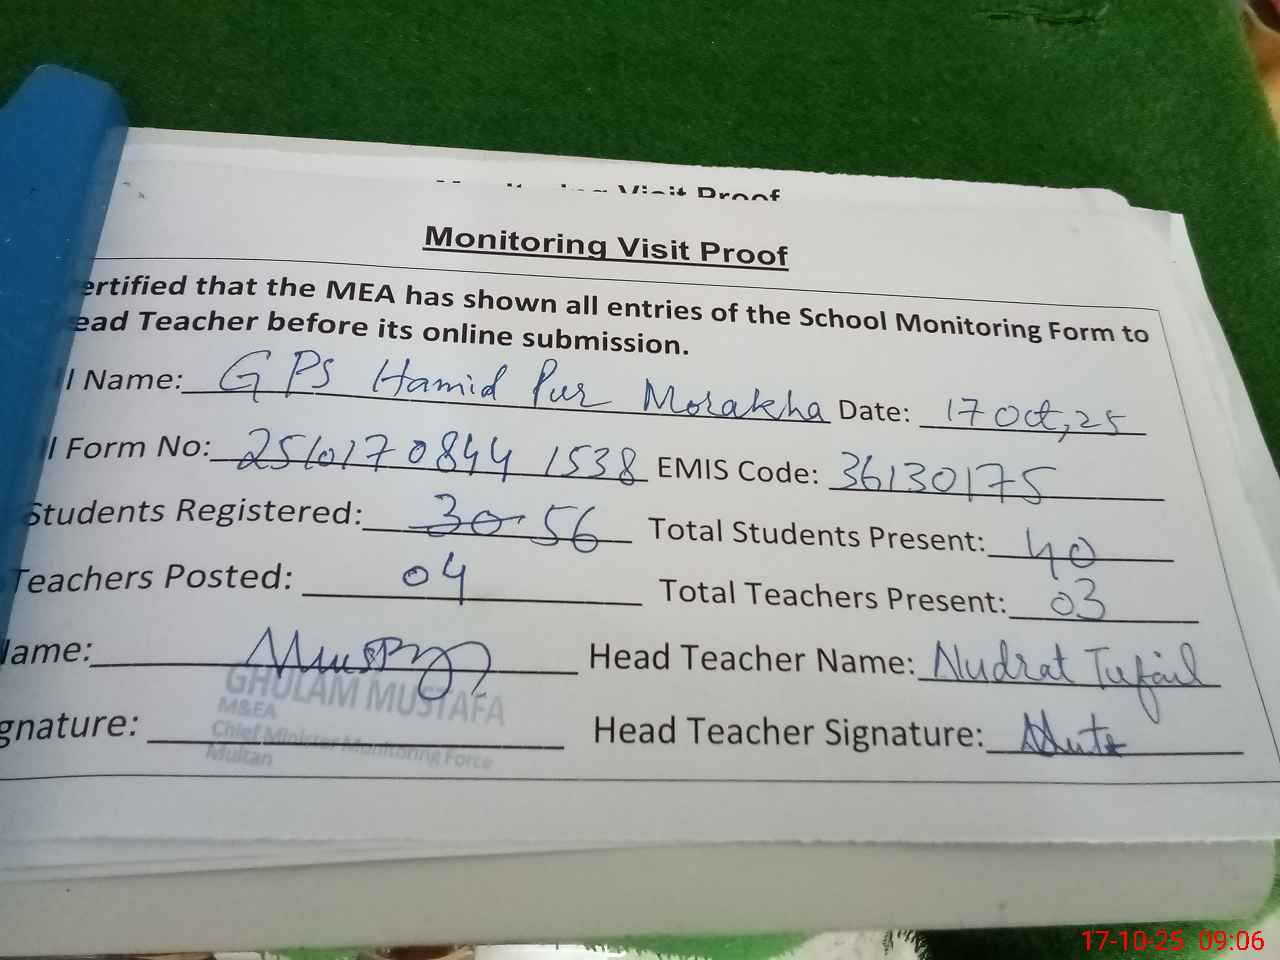 Visit Proof
Monitoring Visit Proof
ertified that the MEA has shown all entries of the School Monitoring Form to
ead Teacher before its online submission.
l Name: GPS Hamid Pur Morakha Date: 17 Oct, 25
l Form No: 2510170844 1538 EMIS Code: 36130175
Students Registered: 30 56 Total Students Present: 40
Teachers Posted: 04 Total Teachers Present: 03
Name: Head Teacher Name: Nudrat Tufail
GHULAM MUSTAFA
M&EA
gnature: Head Teacher Signature:
Chief Minister Monitoring Force
Multan
17-10-25 09:06